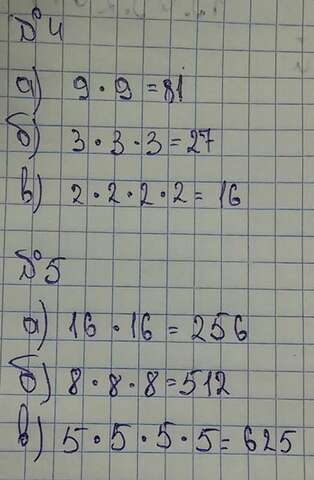 № 4
а) 9 · 9 = 81
б) 3 · 3 · 3 = 27
в) 2 · 2 · 2 · 2 = 16
№ 5
а) 16 · 16 = 256
б) 8 · 8 · 8 = 512
в) 5 · 5 · 5 · 5 = 625